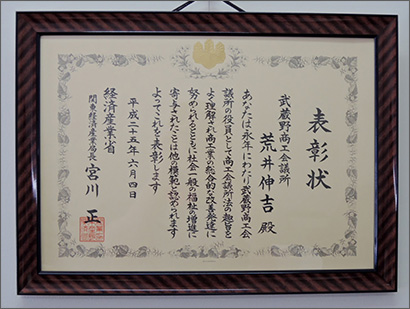 表彰状
武蔵野商工会議所
荒井伸吉 殿
あなたは永年にわたり武蔵野商工会
議所の役員として商工会議所法の趣旨を
よく理解され商工業の総合的な改善発達に
努められるとともに社会一般の福祉の増進に
寄与されたことは他の模範と認められます
よってこれを表彰します
平成二十五年六月四日
経済産業省
関東経済産業局長 宮川 正